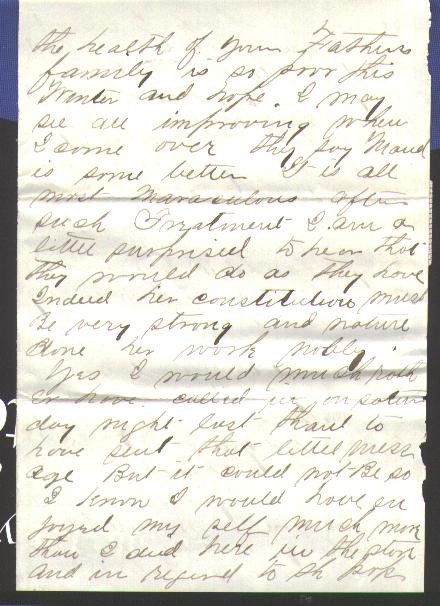 the health of your Fathers
family is so poor this
Winter and hope I may
see all improving when
I come over they say Maud
is some better it is all
most Maraculous after
such Treatment I am a
little surprised to hear that
they would do as they have
Indeed her constitution must
Be very strong and nature
done her work nobly.
Yes I would much rath
er have called in on satur
day night last than to
have sent that little mess
age But it could not Be so
I know I would have en
joyed my self much more
than I did here in the store
and in regard to